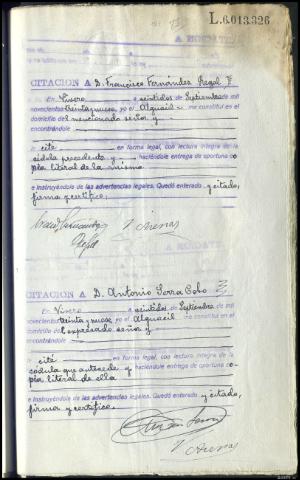 L.6.013.326
CITACION A D. Francisco Fernández Regal
En Vivero a veintidos de Septiembre de mil
novecientos treinta y nueve, yo el Alguacil me constituí en el
domicilio del mencionado señor y
encontrándole
le cité en forma legal, con lectura íntegra de la
cédula precedente y haciéndole entrega de oportuna co-
pia literal de la misma
e instruyéndole de las advertencias legales. Quedó enterado y citado,
firma y certifico.
Regal
V. Arenas
CITACION A D. Antonio Serra Cobo
En Vivero a veintidos de Septiembre de mil
novecientos treinta y nueve, yo el Alguacil me constituí en el
domicilio del expresado señor y
encontrándole
le cité en forma legal, con lectura íntegra de la
cédula que antecede y haciéndole entrega de oportuna co-
pia literal de ella
e instruyéndole de las advertencias legales. Quedó enterado y citado,
firma y certifico.
V. Arenas